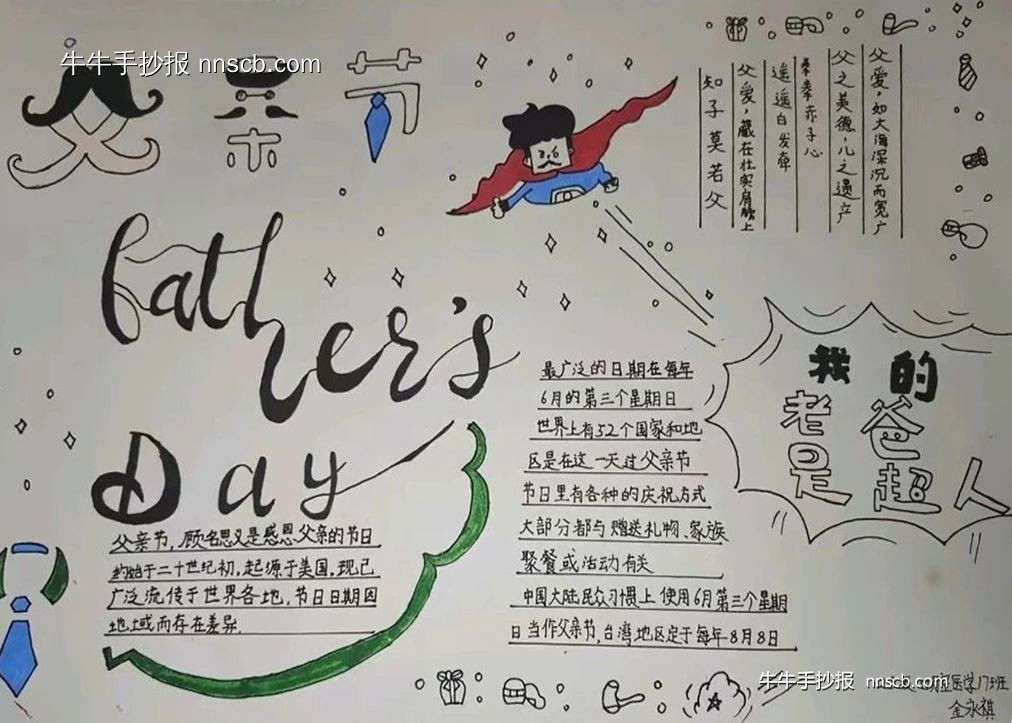 牛牛手抄报 nnscb.com
父亲节
father's
Day
父爱,如大海深沉而宽广
父之美德,儿之遗产
拳拳赤子心
遥遥白发牵
父爱,藏在壮实肩膀上
知子莫若父
我的
老爸
是超人
最广泛的日期在每年
6月的第三个星期日
世界上有52个国家和地
区是在这一天过父亲节
节日里有各种的庆祝方式
大部分都与赠送礼物、家族
聚餐或活动有关
中国大陆民众习惯上使用6月第三个星期
日当作父亲节,台湾地区定于每年8月8日
父亲节,顾名思义是感恩父亲的节日
约始于二十世纪初,起源于美国,现已
广泛流传于世界各地,节日日期因
地域而存在差异.
牛牛手抄报 nnscb.com
医学17班
金永祺